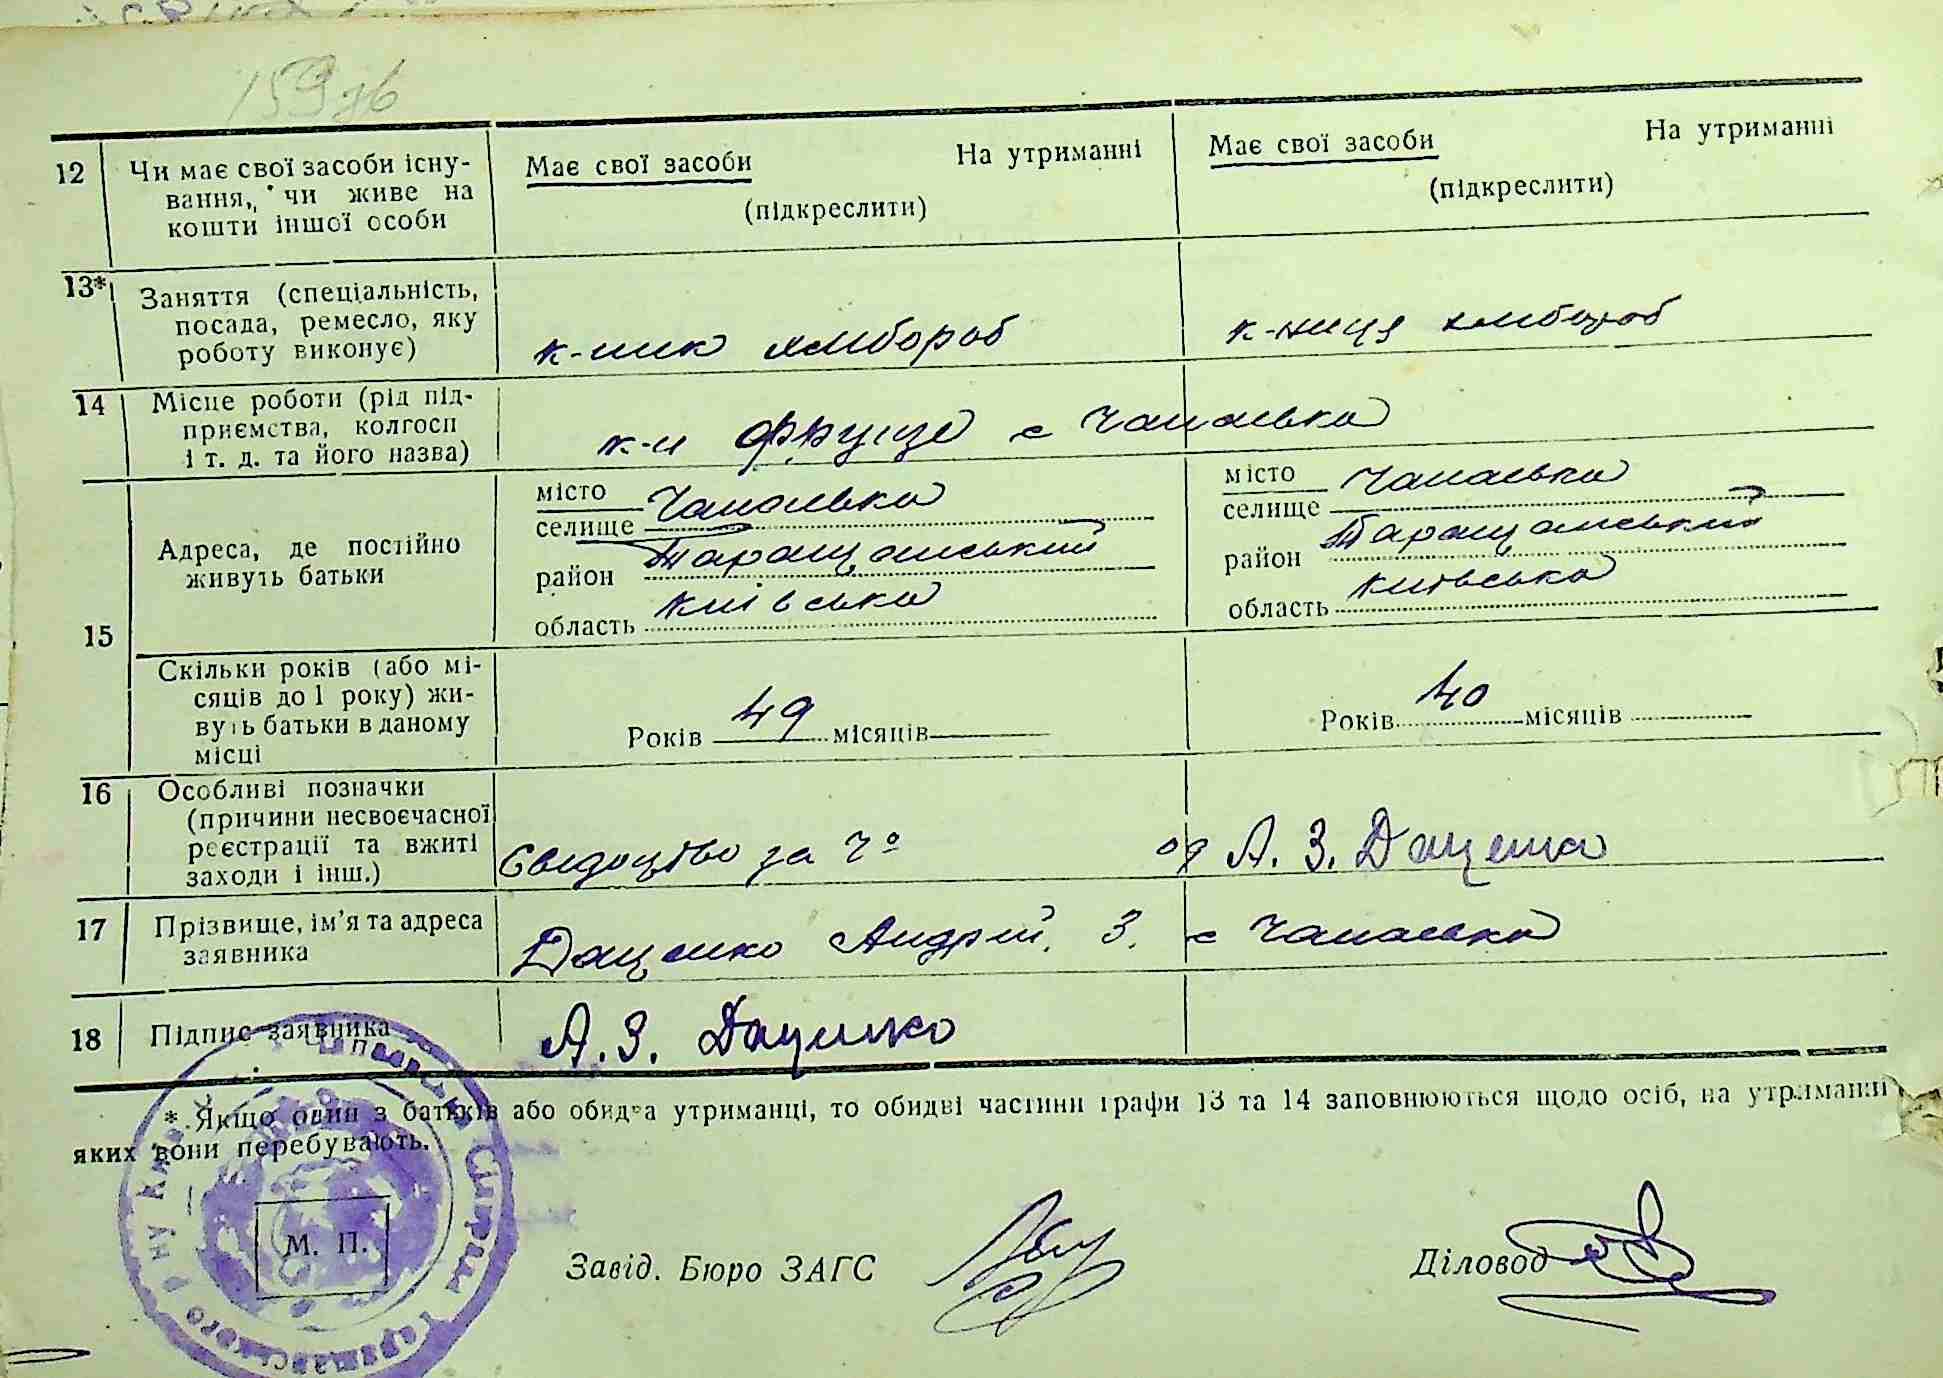 159 зв
12 Чи має свої засоби існу- Має свої засоби На утриманні Має свої засоби На утриманні
вання, чи живе на (підкреслити) (підкреслити)
кошти іншої особи
13* Заняття (спеціальність,
посада, ремесло, яку к-ник хлібороб к-ниця хлібороб
роботу виконує)
14 Місце роботи (рід під-
приємства, колгосп к-п Фрунзе с Чапаєвка
і т. д. та його назва)
15 Адреса, де постійно
живуть батьки
місто Чапаєвка місто Чапаєвка
селище селище
район Таращанський район Таращанський
область Київська область Київська
Скільки років (або мі-
сяців до 1 року) жи-
вуть батьки в даному Років 49 місяців Років 40 місяців
місці
16 Особливі позначки
(причини несвоєчасної
реєстрації та вжиті Свідоцтво за од А. З. Даценка
заходи і інш.)
17 Прізвище, ім'я та адреса Даценко Андрій. З. с Чапаєвка
заявника
18 Підпис заявника А. З. Даценко
* Якщо один з батьків або обидва утриманці, то обидві частини графи 13 та 14 заповнюються щодо осіб, на утриманні
яких вони перебувають.
М. П.
Завід. Бюро ЗАГС Діловод